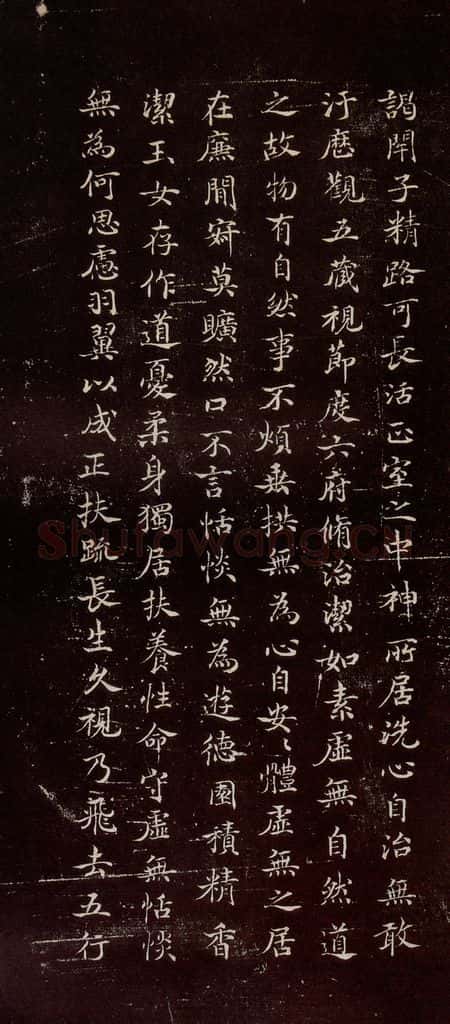 謁閇子精路可長活正室之中神所居洗心自治無敢
汙歷觀五藏視節度六府脩治潔如素虛無自然道
之故物有自然事不煩垂拱無為心自安〻體虛無之居
在廉閒寂莫曠然口不言恬惔無為遊德園積精香
潔玉女存作道憂柔身獨居扶養性命守虛無恬惔
無為何思慮羽翼以成正扶疏長生久視乃飛去五行
Shufawang.cn